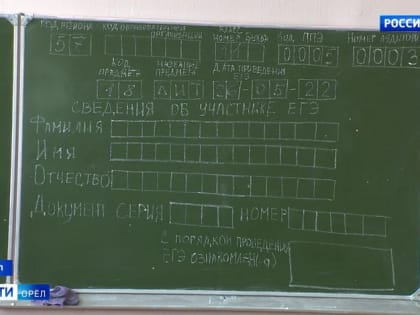 РОССИ
КОД РЕГИОНА КОД ОБРАЗОВАТЕЛЬНОЙ ОРГАНИЗАЦИИ КЛАСС НОМЕР БУКВА КОД ППЭ НОМЕР АУДИТОРИИ
57 0005 0003
КОД ПРЕДМЕТА НАЗВАНИЕ ПРЕДМЕТА ДАТА ПРОВЕДЕНИЯ ЕГЭ
18 ЛИТ 26-05-22
СВЕДЕНИЯ ОБ УЧАСТНИКЕ ЕГЭ
ФАМИЛИЯ
ИМЯ
ОТЧЕСТВО
ДОКУМЕНТ СЕРИЯ НОМЕР
С ПОРЯДКОМ ПРОВЕДЕНИЯ
ЕГЭ ОЗНАКОМЛЕН(А)
ОРЁЛ